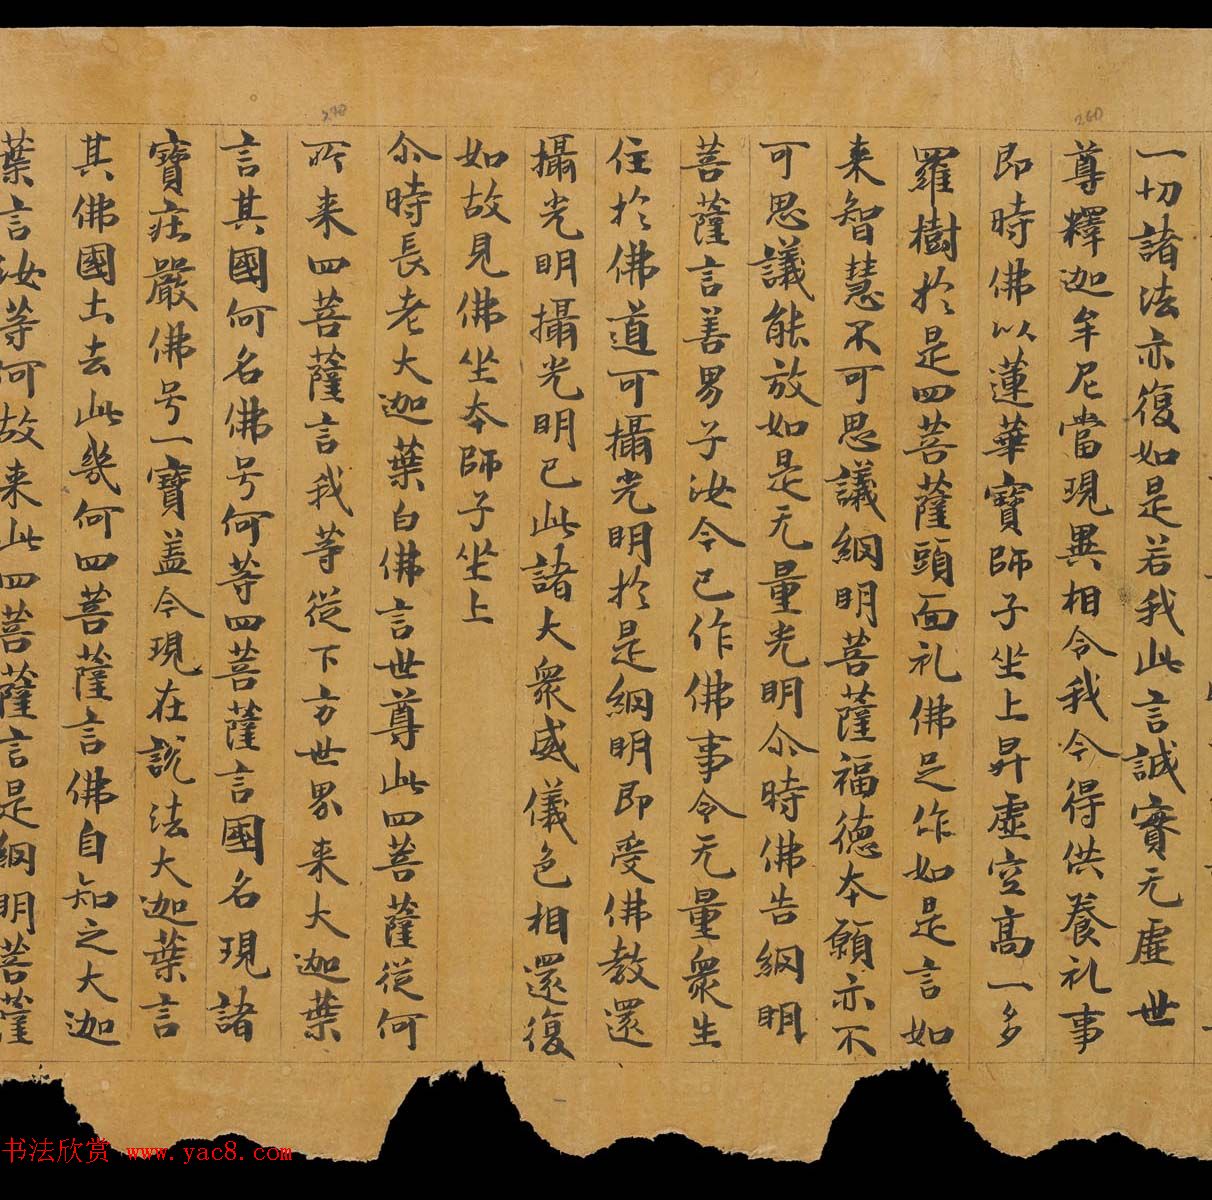 一切諸法亦復如是若我此言誠實无虛世
尊釋迦牟尼當現異相令我今得供養礼事
即時佛以蓮華寶師子坐上昇虛空高一多
羅樹於是四菩薩頭面礼佛足作如是言如
来智慧不可思議綱明菩薩福德本願亦不
可思議能放如是无量光明尒時佛告綱明
菩薩言善男子汝今已作佛事令无量衆生
住於佛道可攝光明於是綱明即受佛教還
攝光明攝光明已此諸大衆威儀色相還復
如故見佛坐本師子坐上
尒時長老大迦葉白佛言世尊此四菩薩從何
所来四菩薩言我等從下方世界来大迦葉
言其國何名佛号何等四菩薩言國名現諸
寶莊嚴佛号一寶盖今現在說法大迦葉言
其佛國土去此幾何四菩薩言佛自知之大迦
葉言汝等何故来此四菩薩言是綱明菩薩
270
260
书法欣赏 www.yac8.com